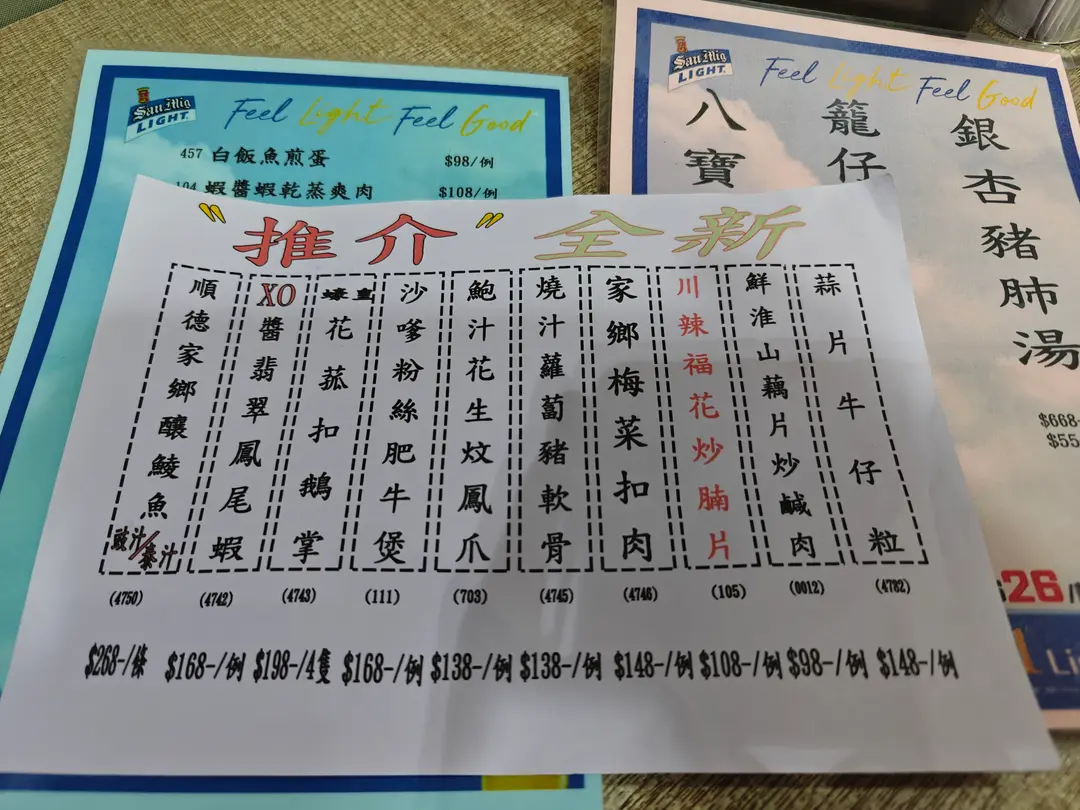 San Mig
LIGHT
Feel Light Feel Good
457 白飯魚煎蛋 $98/例
104 蝦醬蝦乾蒸爽肉 $108/例
San Mig
LIGHT
Feel Light Feel Good
八寶
籠仔
銀杏豬肺湯
$668-
$55
26
Li
"推介" 全新
順德家鄉釀鯪魚 豉汁/秦汁
(4750)
$268-/條
XO醬翡翠鳳尾蝦
(4742)
$168-/例
蠔皇花菰扣鵝掌
(4743)
$198-/4隻
沙嗲粉絲肥牛煲
(111)
$168-/例
鮑汁花生炆鳳爪
(703)
$138-/例
燒汁蘿蔔豬軟骨
(4745)
$138-/例
家鄉梅菜扣肉
(4746)
$148-/例
川辣福花炒腩片
(105)
$108-/例
鮮淮山藕片炒鹹肉
(0012)
$98-/例
蒜片牛仔粒
(4782)
$148-/例